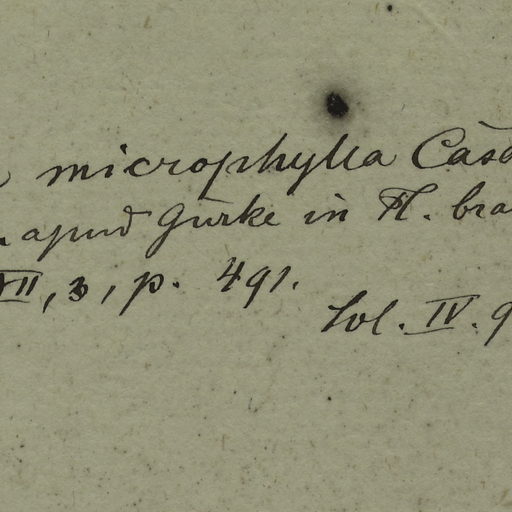 microphylla Casa
. apud Gürke in Fl. bra
XII, 3, p. 491.
Sol. IV. 9